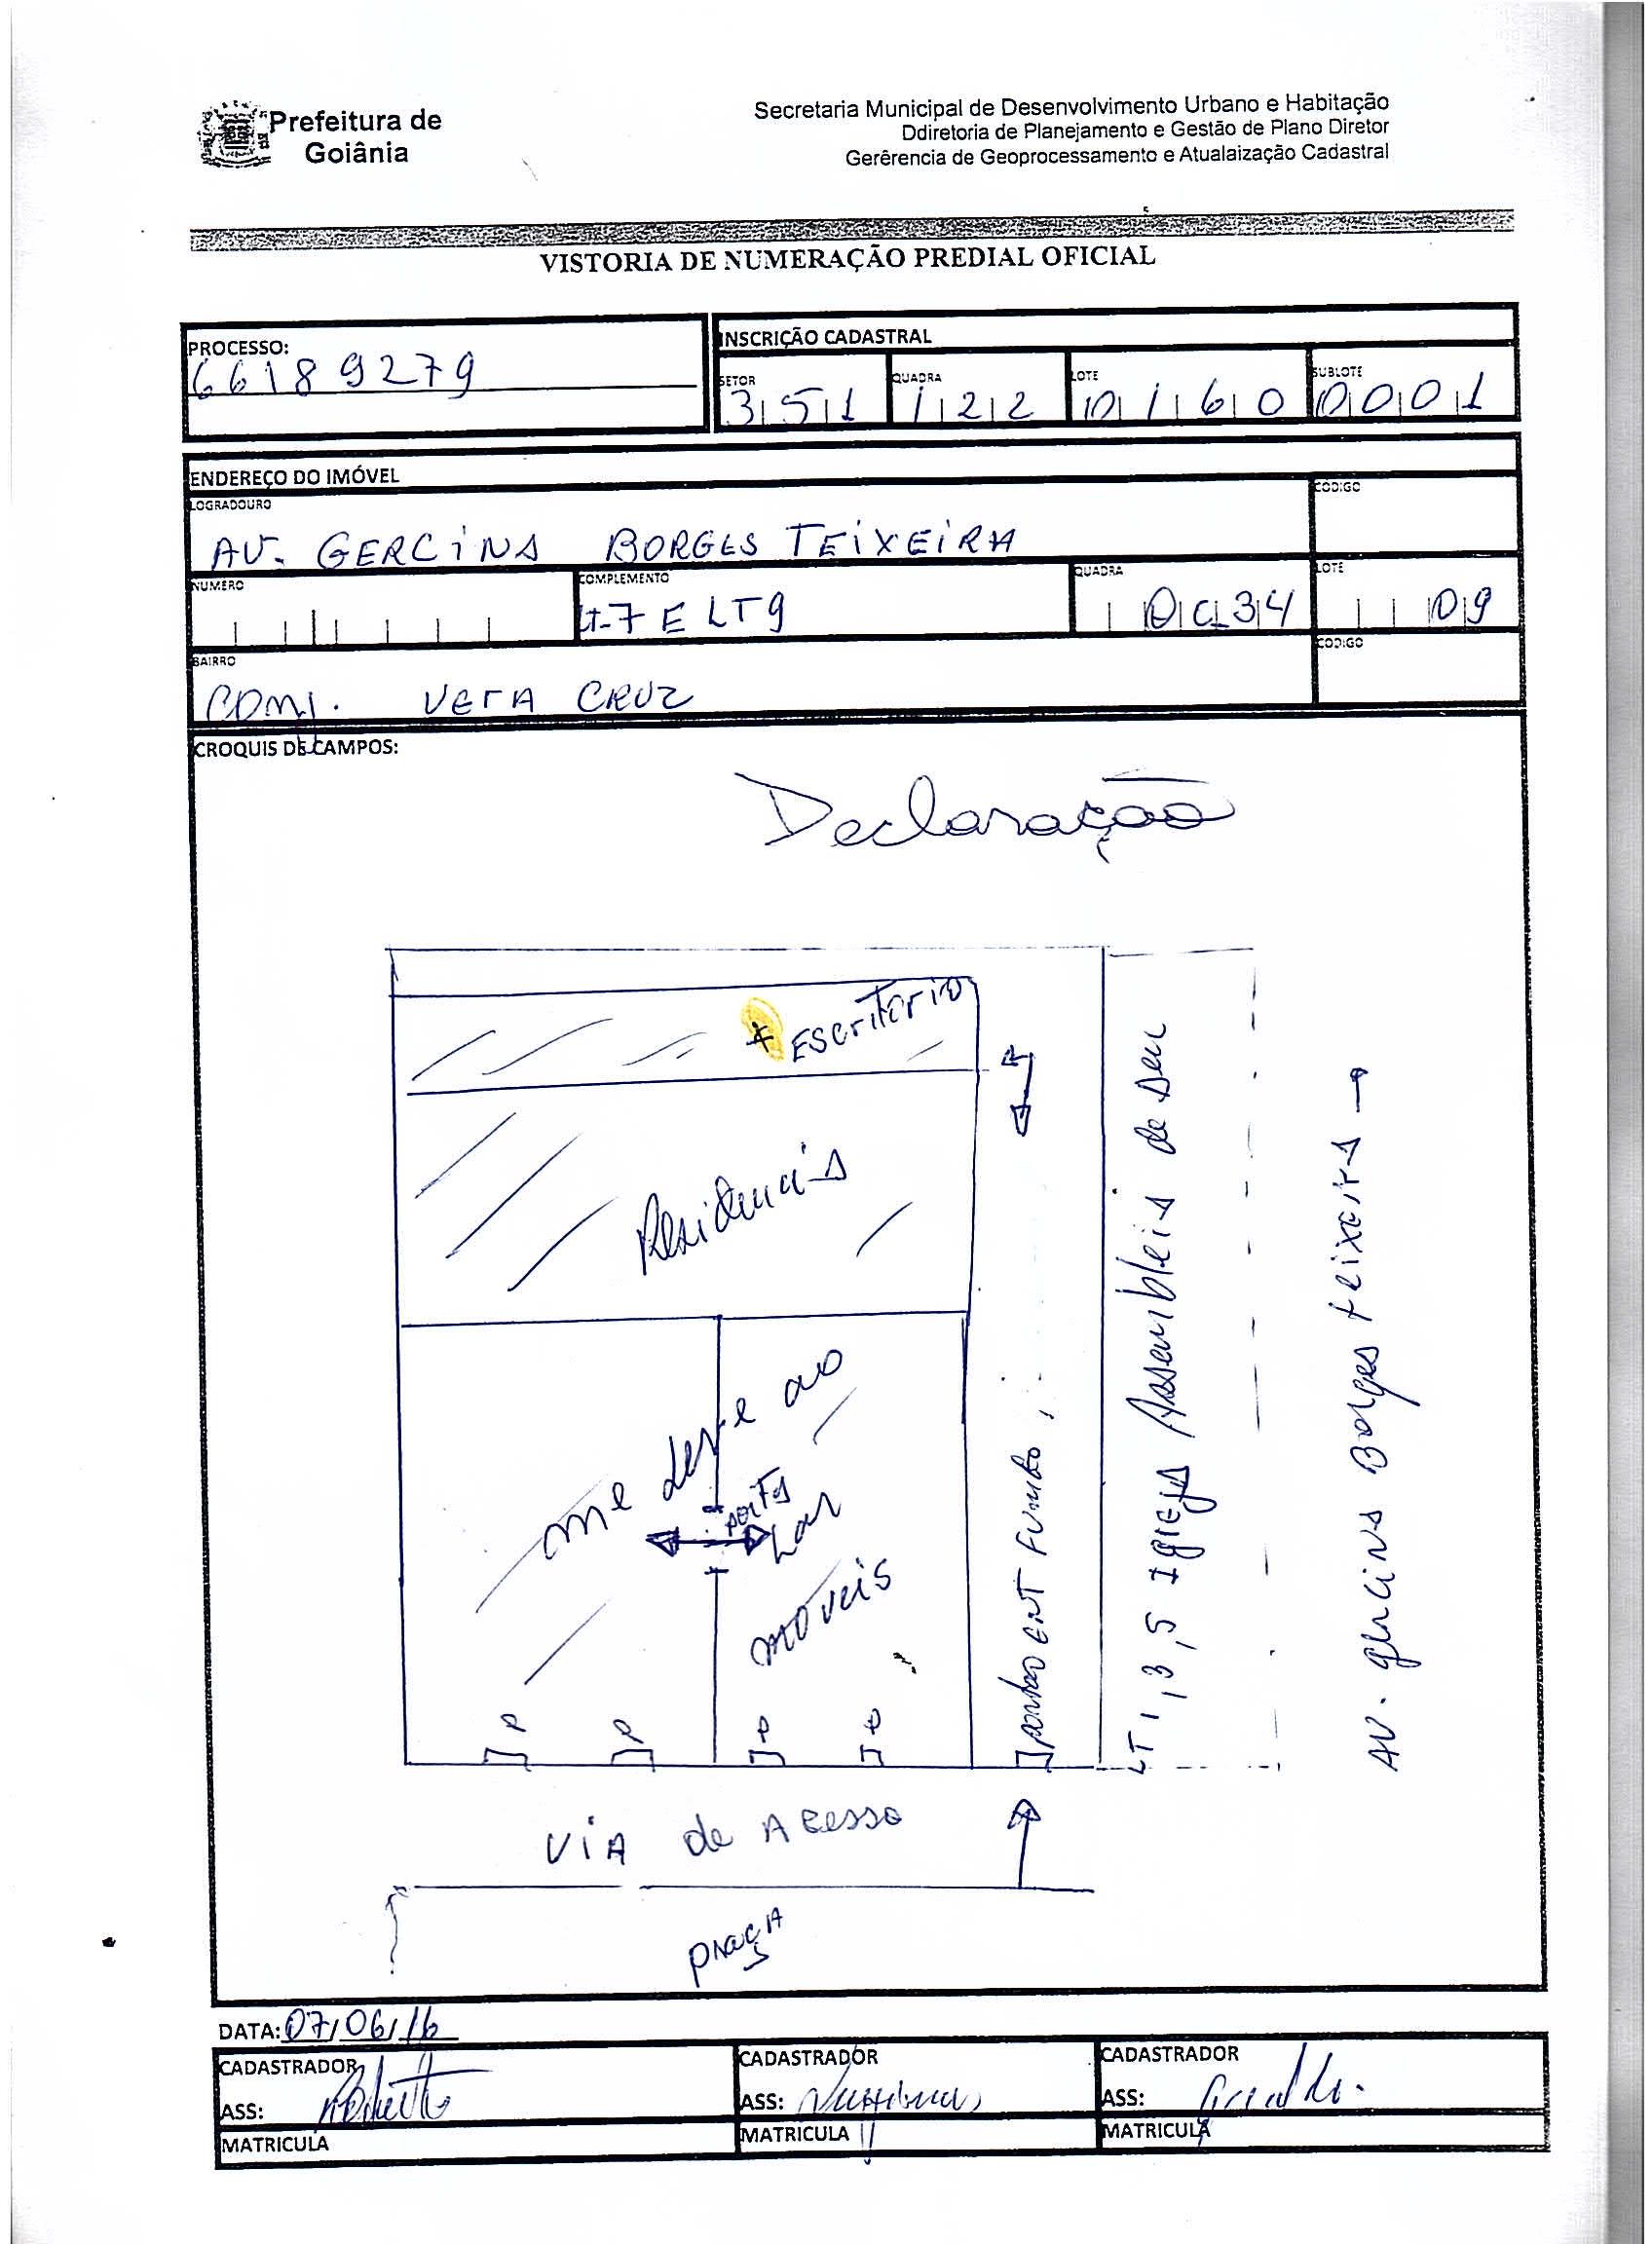 Prefeitura de
Goiânia
Secretaria Municipal de Desenvolvimento Urbano e Habitação
Ddiretoria de Planejamento e Gestão de Plano Diretor
Gerêrencia de Geoprocessamento e Atualaização Cadastral
VISTORIA DE NUMERAÇÃO PREDIAL OFICIAL
PROCESSO:
66189279
INSCRIÇÃO CADASTRAL
SETOR QUADRA LOTE SUBLOTE
351 122 0160 0001
ENDEREÇO DO IMÓVEL
LOGRADOURO CODIGO
AV. GERCINA BORGES TEIXEIRA
NUMERO COMPLEMENTO QUADRA LOTE
LT-7 E LT9 QC34 09
BAIRRO CODIGO
CONJ. VERA CRUZ
CROQUIS DE CAMPOS:
Declaração
* Escritorio
Residencia
ao
porta
Lar
moveis
portão ENT FUNDO
LT 1, 3, 5 Igreja Assembleia de Deu
AV. gercina Borges teixeira →
P P P P
VIA de Acesso
praça
DATA: 07/06/16
CADASTRADOR CADASTRADOR CADASTRADOR
ASS: ASS: ASS:
MATRICULA MATRICULA MATRICULA